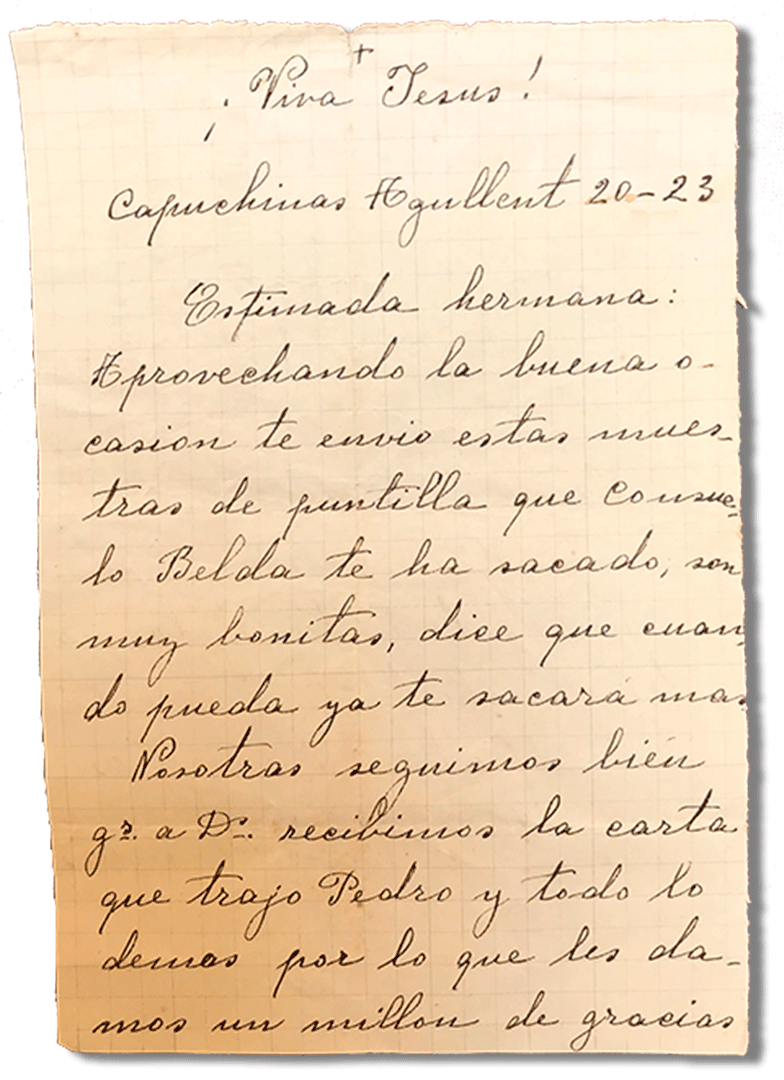 +
¡Viva Jesus!
Capuchinas Agullent 20-23
Estimada hermana:
Aprovechando la buena o-
casion te envio estas mues-
tras de puntilla que Consue-
lo Belda te ha sacado, son
muy bonitas, dice que cuan-
do pueda ya te sacará mas
Nosotras seguimos bién
gs. a Ds. recibimos la carta
que trajo Pedro y todo lo
demas por lo que les da-
mos un millon de gracias